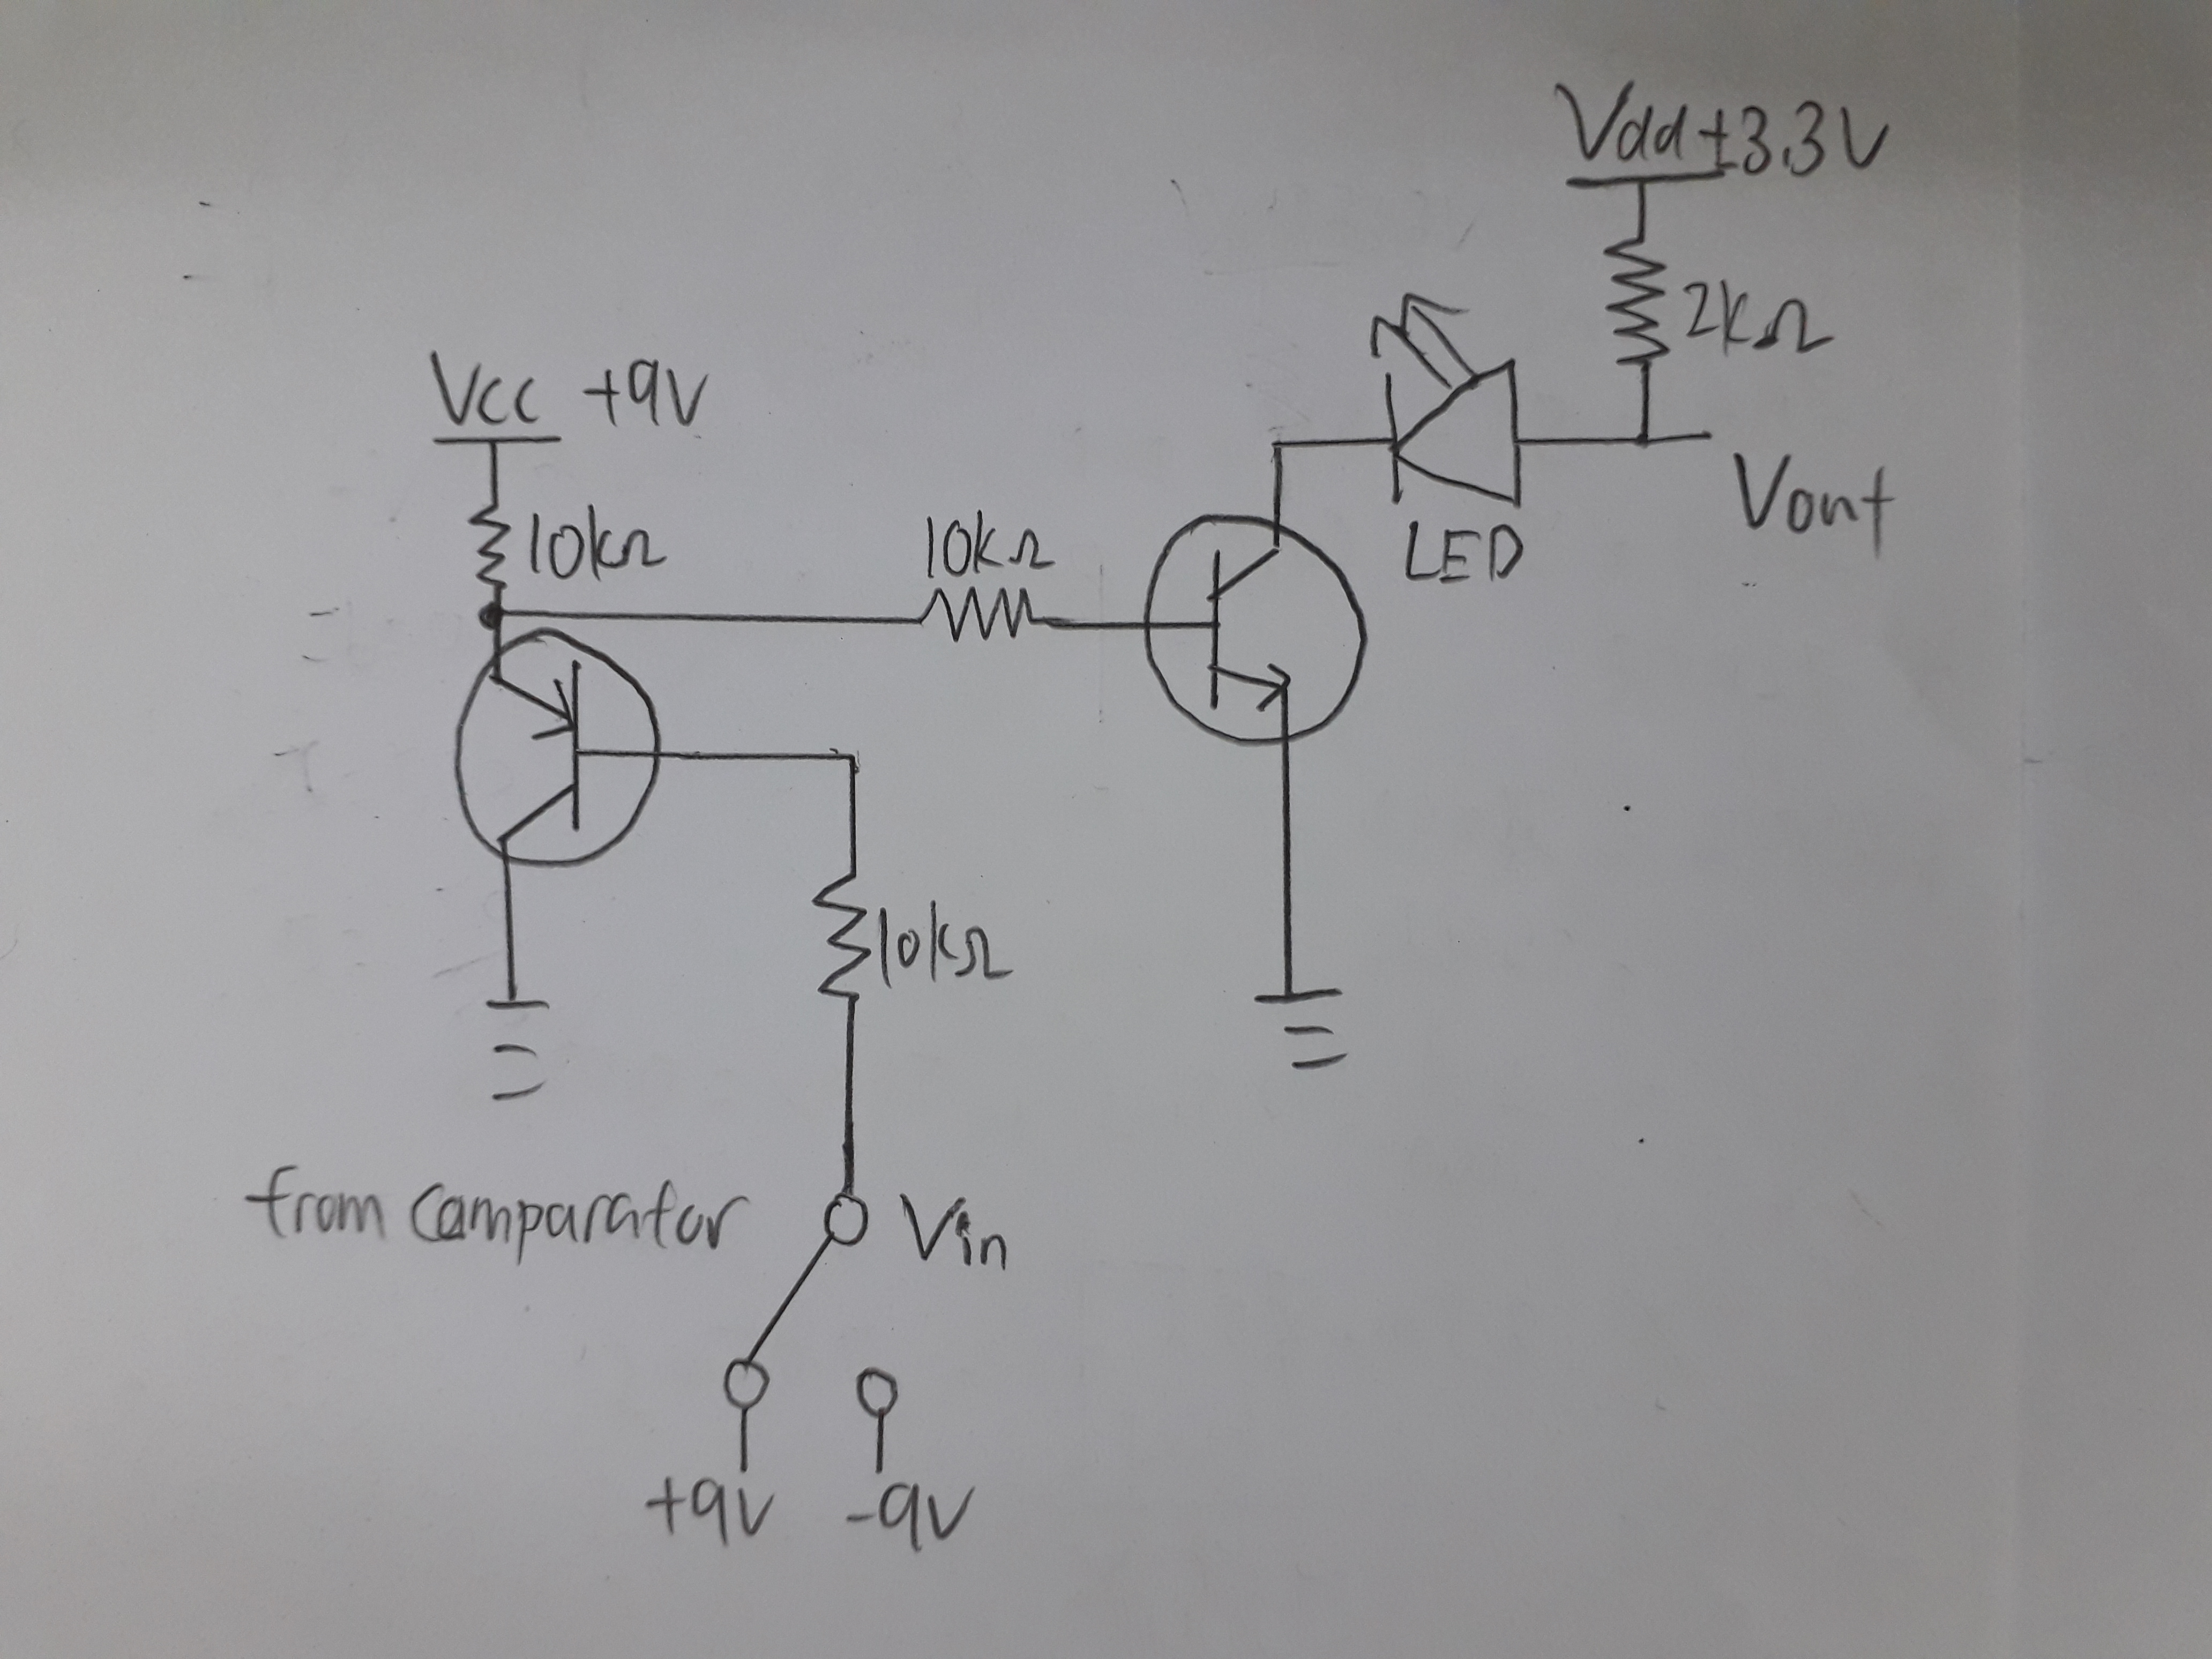 Vdd+3.3V
2kΩ
Vcc +9V
10kΩ
10kΩ
LED
Vout
10kΩ
from Comparator
Vin
+9V
-9V